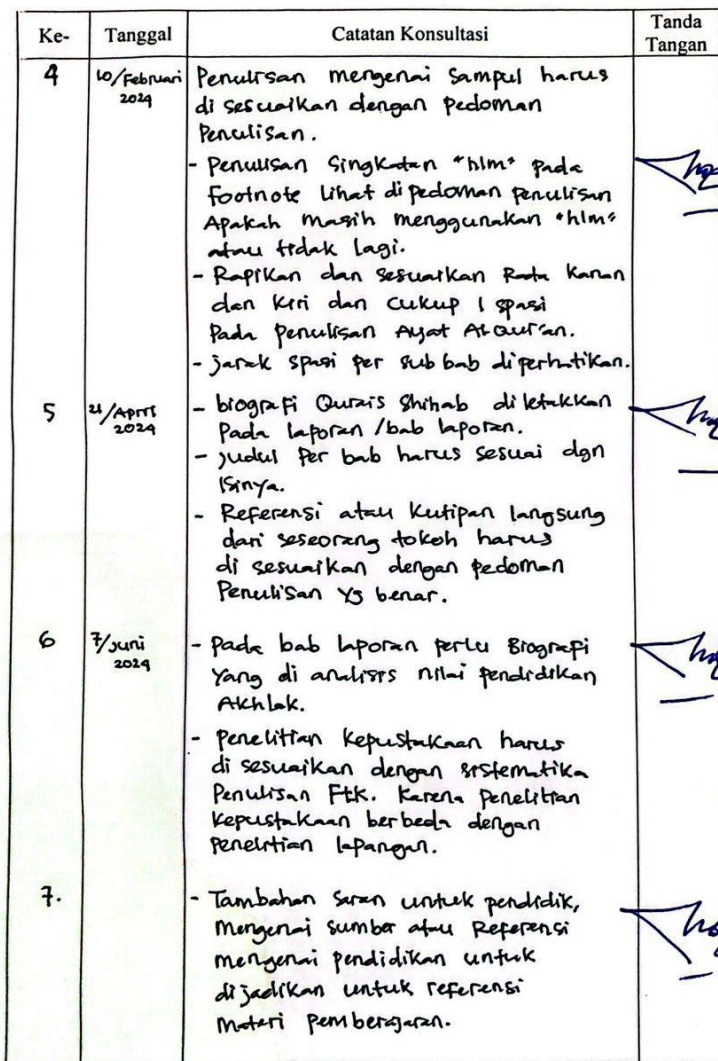 Ke- Tanggal Catatan Konsultasi Tanda Tangan
4 10/Februari 2024 Penulisan mengenai Sampul harus
di sesuaikan dengan Pedoman
Penulisan.
- Penulisan Singkatan "hlm" Pada
Footnote Lihat di pedoman penulisan
Apakah masih menggunakan "hlm"
atau tidak lagi.
- Rapikan dan sesuaikan Rata kanan
dan kiri dan cukup 1 spasi
Pada penulisan Ayat Al Qur'an.
- jarak spasi per sub bab diperhatikan.
5 21/April 2024 - biografi Qurais Shihab diletakkan
Pada laporan /bab laporan.
- judul Per bab harus sesuai dgn
isinya.
- Referensi atau kutipan langsung
dari seseorang tokoh harus
di sesuaikan dengan pedoman
Penulisan yg benar.
6 7/juni 2024 - pada bab laporan perlu Biografi
Yang di analisis nilai pendidikan
Akhlak.
- penelitian kepustakaan harus
di sesuaikan dengan sistematika
Penulisan Ftk. Karena penelitian
kepustakaan berbeda dengan
penelitian lapangan.
7. - Tambahan saran untuk pendidik,
Mengenai sumber atau Referensi
mengenai pendidikan untuk
dijadikan untuk referensi
materi pemberajaran.